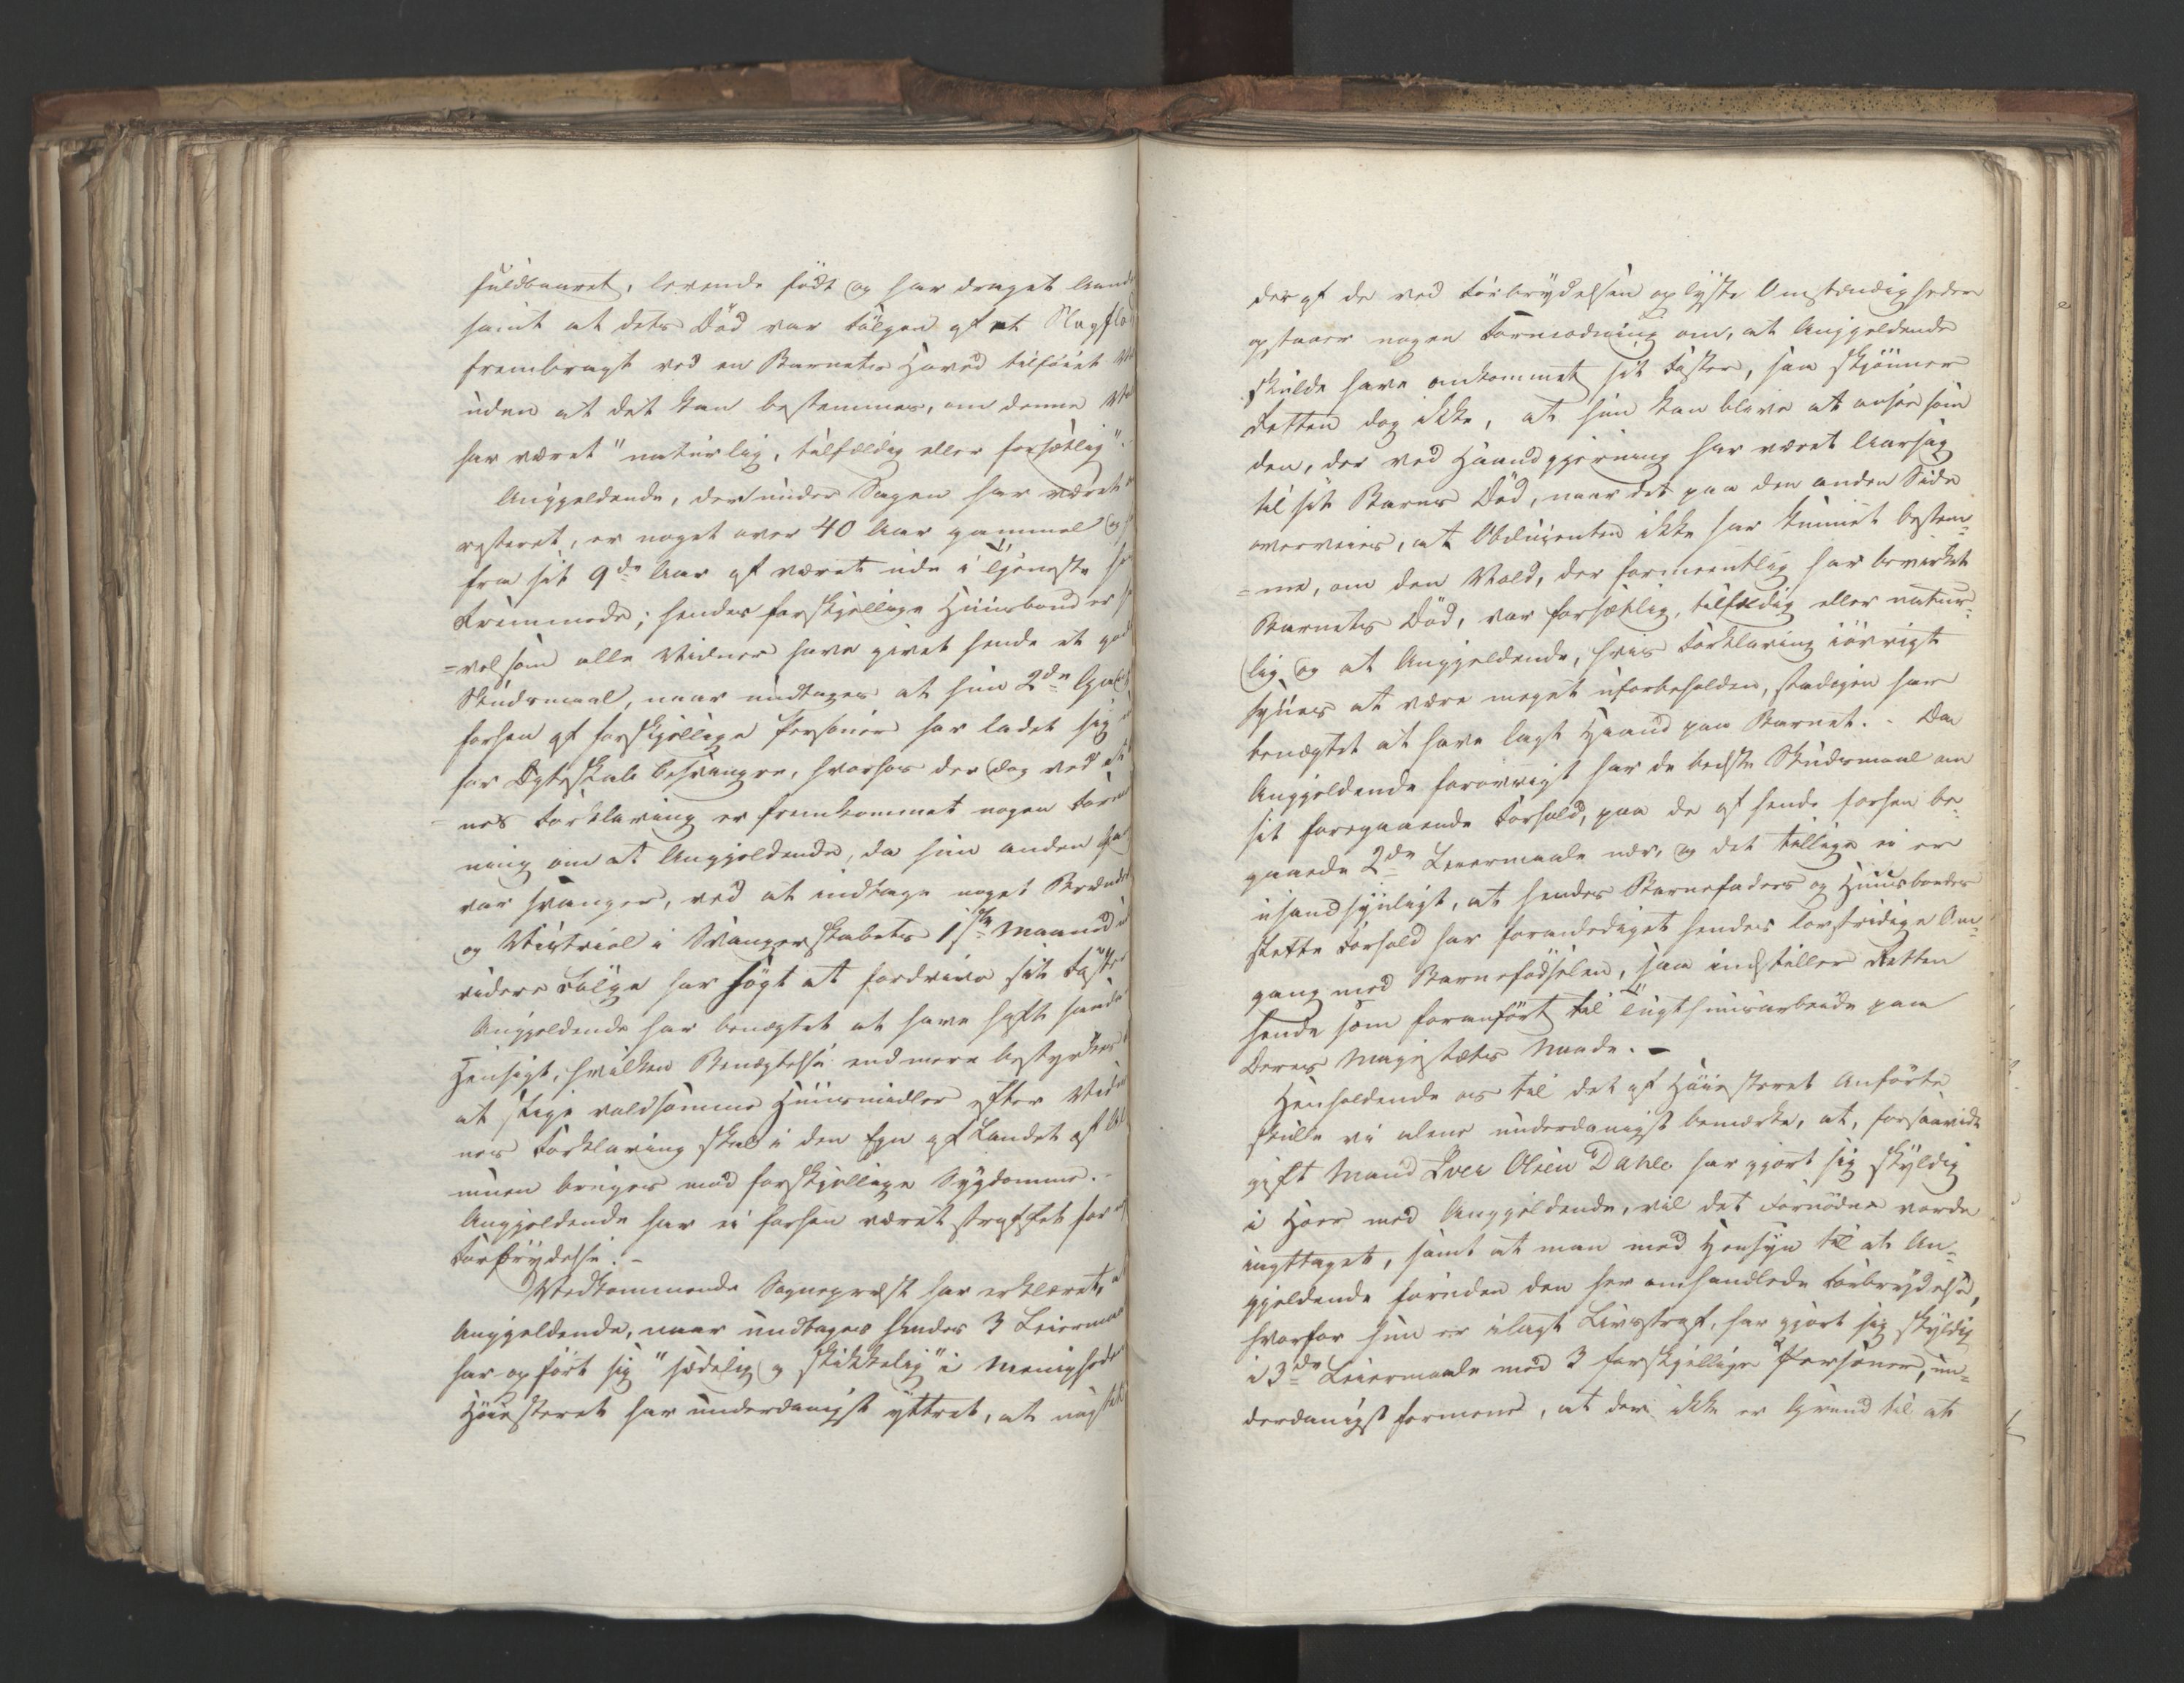 fuldbaaret, levende født og har draget Aande
samt at dets Død var Følgen af et Slagflod
frembragt ved en Barnets Hoved tilføiet Vold
uden at det kan bestemmes, om denne Vold
har været "naturlig, tilfældig eller forsætlig".
Angjeldende, der under Sagen har været
resteret, er noget over 40 Aar gammel og
fra sit 9de Aar af været ude i Tjeneste hos
Fremmede; hendes forskjellige Huusbonder
=vel som alle Vidner have givet hende et godt
Skudsmaal, naar undtages at hun 2de Gange
forhen af forskjellige Personer har ladet sig
for Ægteskab besvangre, hvorhos der dog ved
nes Forklaring er fremkommet nogen Formod
ning om at Angjeldende, da hun anden Gang
var svanger, ved at indtage noget Brændeviin
og Victriol i Svangerskabets 1ste Maaned
videre Følge har søgt at fordrive sit Foster
Angjeldende har benægtet at have havt saadan
Hensigt, hvilken Benægtelse end mere bestyrkes
at slige voldsomme Huusmidler efter Vid
nes Forklaring skal i den Egn af Landet af Al
muen bruges mod forskjellige Sygdomme. -
Angjeldende har ei forhen været straffet for
Forbrydelse. -
Vedkommende Sognepræst har erklæret, at
Angjeldende, naar undtages hendes 3 Leiermaal
har opført sig "sædelig og skikkelig" i Menigheden
Høiesteret har underdanigst yttret, at uagtet
der af de ved Forbrydelsen oplyste Omstændigheder
opstaaer nogen Formodning om, at Angjeldende
skulde have omkommet sit Foster, saa skjønner
Retten dog ikke, at hun kan blive at ansee som
den, der ved Haandgjerning har været Aarsag
til sit Barns Død, naar det paa den anden Side
overveies, at Obducenten ikke har kunnet bestem=
=me, om den Vold, der formeentlig har bevirket
Barnets Død, var forsætlig, tilfældig eller natur=
lig og at Angjeldende, hvis Forklaring iøvrigt
synes at være meget uforbeholden, stadigen har
benægtet at have lagt Haand paa Barnet. - Da
Angjeldende forøvrigt har de bedste Skudsmaal om
sit foregaaende Forhold, paa de af hende forhen be=
gaaede 2de Leiermaale nær, og det tillige ei er
usandsynligt, at hendes Barnefaders og Huusbondes
slette Forhold har foranlediget hendes lovstridige Om=
gang med Barnefødselen, saa indstiller Retten
hende som foranført til Tugthuusarbeide paa
Deres Majestæts Naade. -
Henholdende os til det af Høiesteret Anførte
skulle vi alene underdanigst bemærke, at, forsaavidt
gift Mand Iver Olsen Dahle har gjort sig skyldig
i Hoer med Angjeldende, vil det Fornødne vorde
iagttaget, samt at man med Hensyn til at An=
gjeldende foruden den her omhandlede Forbrydelse,
hvorfor hun er ilagt Livsstraf, har gjort sig skyldig
i 3de Leiermaale med 3 forskjellige Personer, un=
derdanigst formene, at der ikke er Grund til at